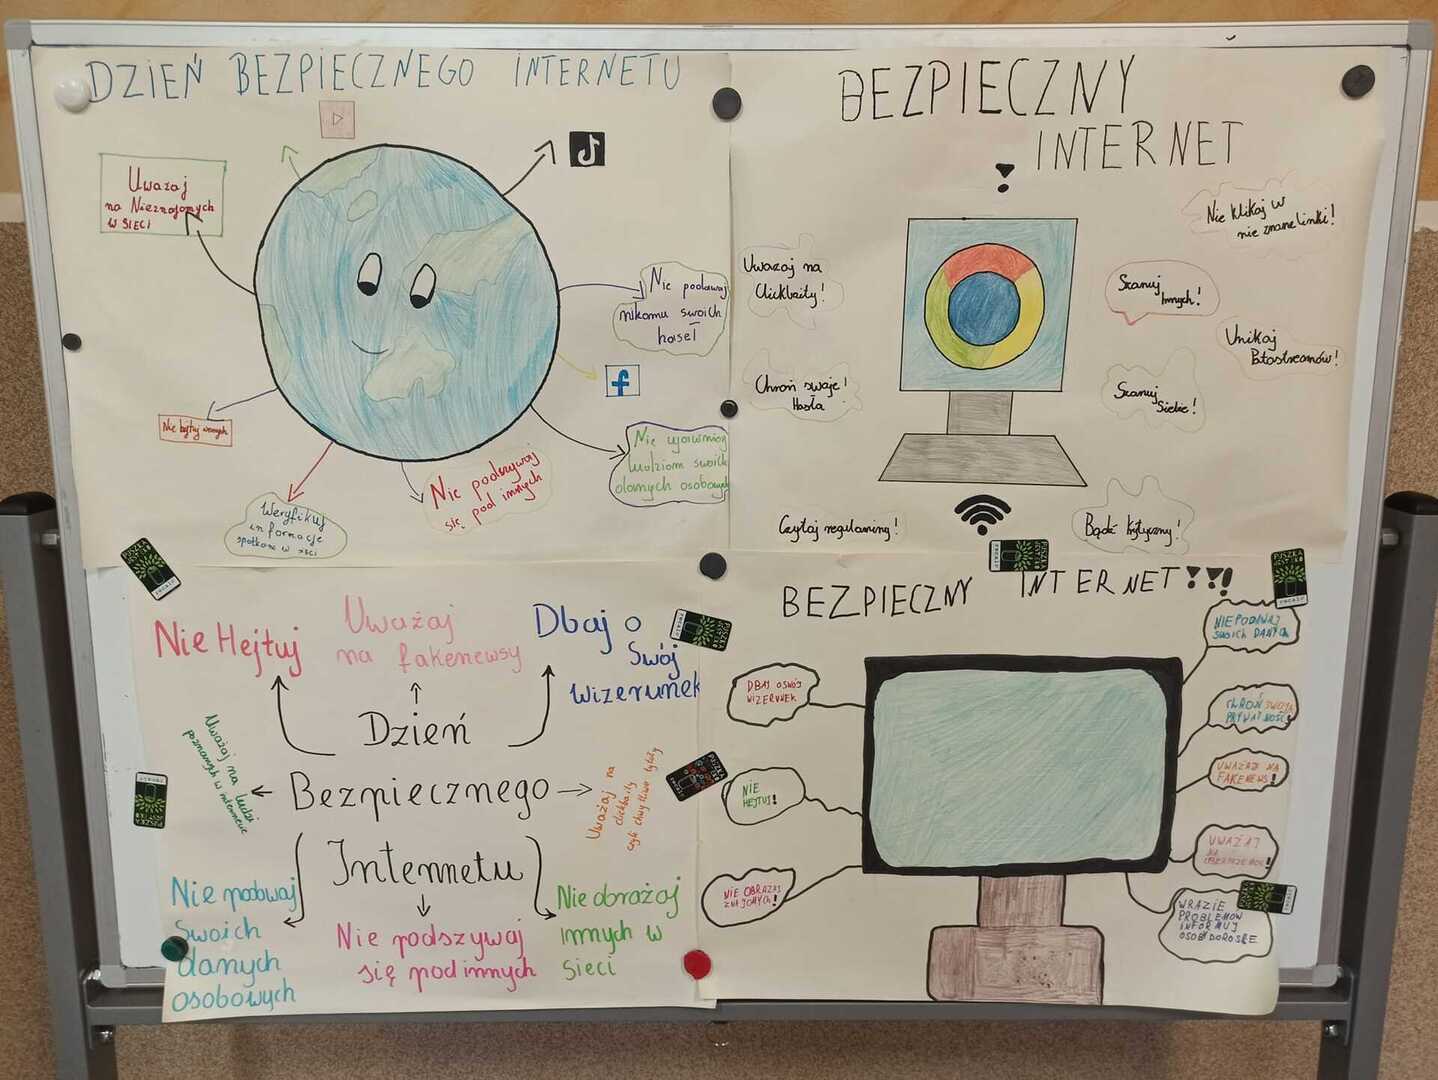 DZIEŃ BEZPIECZNEGO INTERNETU
Uważaj
na Nieznajomych
w SIECI
Nie podawaj
nikomu swoich
haseł
f
Nie ujawniaj
ludziom swoich
danych osobowych
Nie podszywaj
się pod innych
Weryfikuj
informacje
w sieci
Nie hejtuj innych
BEZPIECZNY
INTERNET
!
Uważaj na
Clickbaity!
Chroń swoje!
Hasła
Czytaj regulaminy!
Nie klikaj w
nie znane linki!
Szanuj
Innych!
Unikaj
Patostreamów!
Szanuj
Siebie!
Bądź krytyczny!
Nie Hejtuj
Uważaj
na fakenewsy
Dbaj o
Swój
wizerunek
Dzień
Bezpiecznego
Internetu
Uważaj na ludzi
poznanych w internecie
Uważaj na
clickbaity
czyli chwytliwe tytuły
Nie podawaj
swoich
danych
osobowych
Nie podszywaj
się pod innych
Nie obrażaj
innych w
sieci
BEZPIECZNY INTERNET!?!!
DBAJ O SWÓJ
WIZERUNEK
NIE
HEJTUJ!
NIE OBRAŻAJ
ZNAJOMYCH!
NIE PODAWAJ
SWOICH DANYCH
CHROŃ SWOJĄ
PRYWATNOŚĆ!
UWAŻAJ NA
FAKENEWS!
UWAŻAJ
NA
WRAZIE
PROBLEMÓW
INFORMUJ
OSOBY DOROSŁE